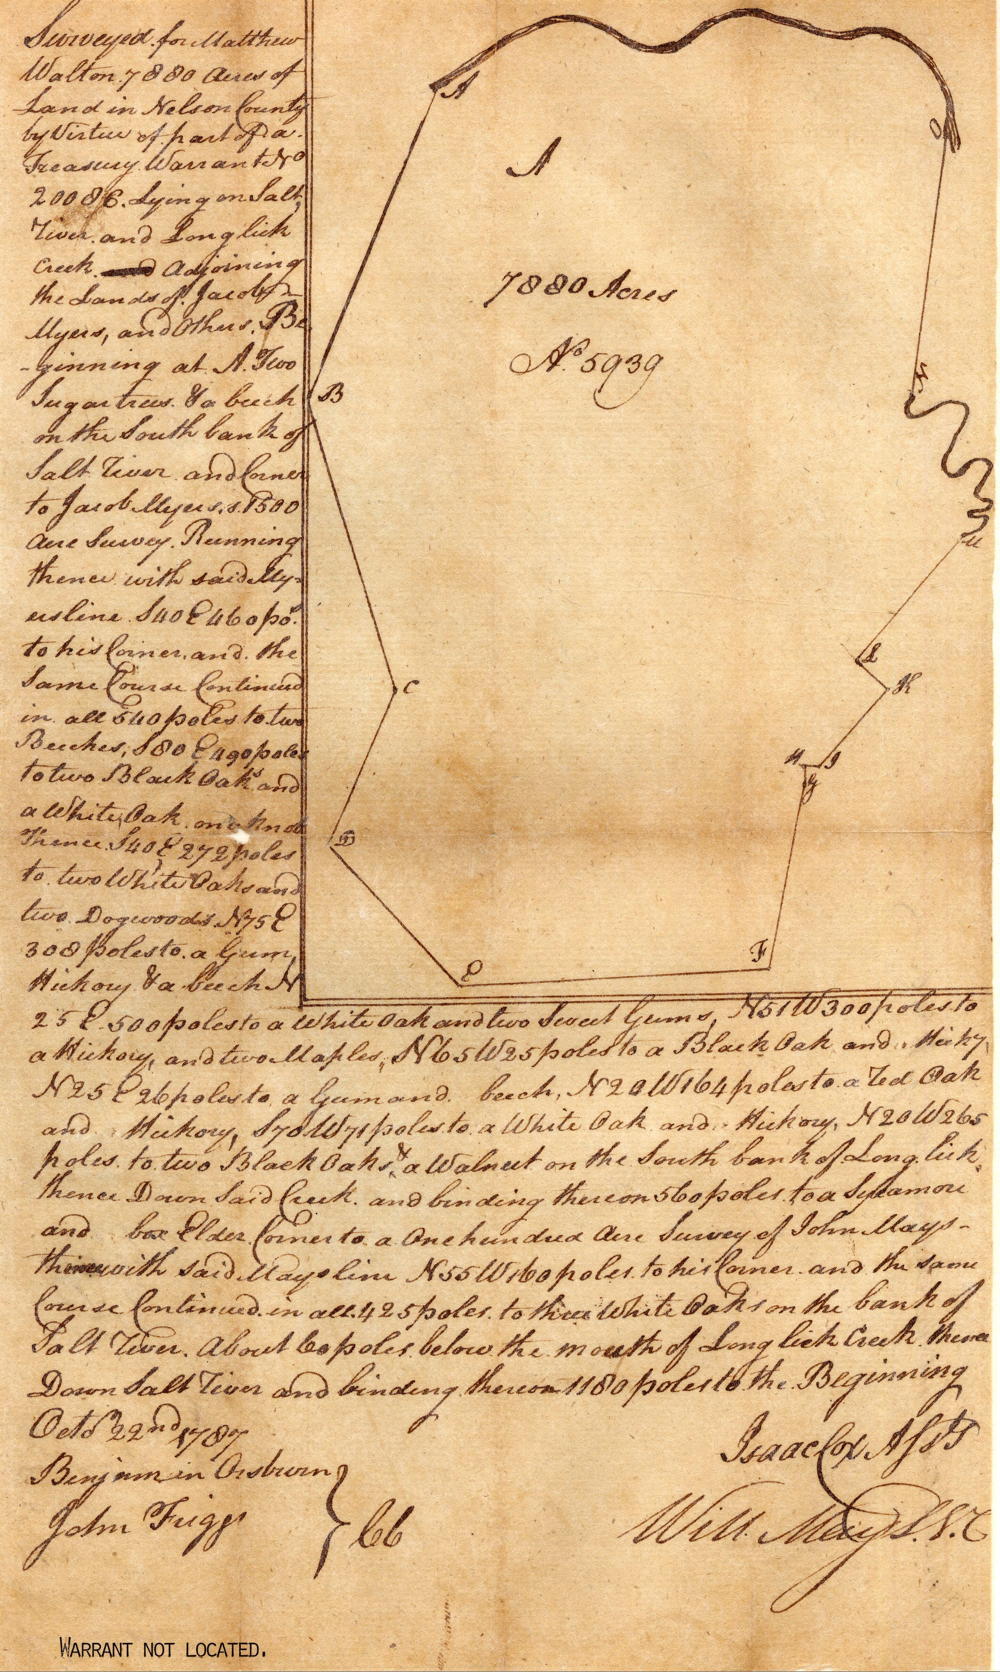 Surveyed for Matthew
Walton 7880 Acres of
Land in Nelson County
by Virtue of part of a
Treasury Warrant No
20086. Lying on Salt
River and Long lick
Creek and Adjoining
the Lands of Jacob
Myers, and Others. Be
-ginning at A. Two
Sugartrees & a beech
on the South bank of
Salt River and Corner
to Jacob Myers,s. 1500
Acre Survey. Running
thence with said My-
ers line S40E 460 po.s
to his Corner and the
Same Course Continued
in all 540 poles to two
Beeches, S80E 490 poles
to two Black Oaks and
a White Oak on a knob
Thence S40E 272 poles
to two White Oaks and
two Dogwoods N75E
308 poles to a Gum,
Hickory & a beech N
25E. 500 poles to a White Oak and two Sweet Gums, N51W 300 poles to
a Hickory, and two Maples, N65W 25 poles to a Black Oak and Hicky
N25E 26 poles to a Gum and beech, N20W 164 poles to a Red Oak
and Hickory, S70W 71 poles to a White Oak and Hickory, N20W 265
poles to two Black Oaks & a Walnut on the South bank of Long lick
thence Down Said Creek and binding thereon 560 poles to a Sycamore
and box Elder Corner to a One hundred Acre Survey of John Mays-
thence with said Mays line N55W 160 poles to his Corner and the same
Course Continued in all 425 poles to three White Oaks on the bank of
Salt River. About 60 poles below the mouth of Long lick Creek thence
Down Salt River and binding thereon 1180 poles to the Beginning
Octo 22nd 1787
Benjamin Orsburn
John Friggs
} CC
Isaac Cox ASST
Will May S.N.C
A
A
7880 Acres
No. 5939
B
C
D
E
F
G
H
I
K
L
M
N
O
WARRANT NOT LOCATED.